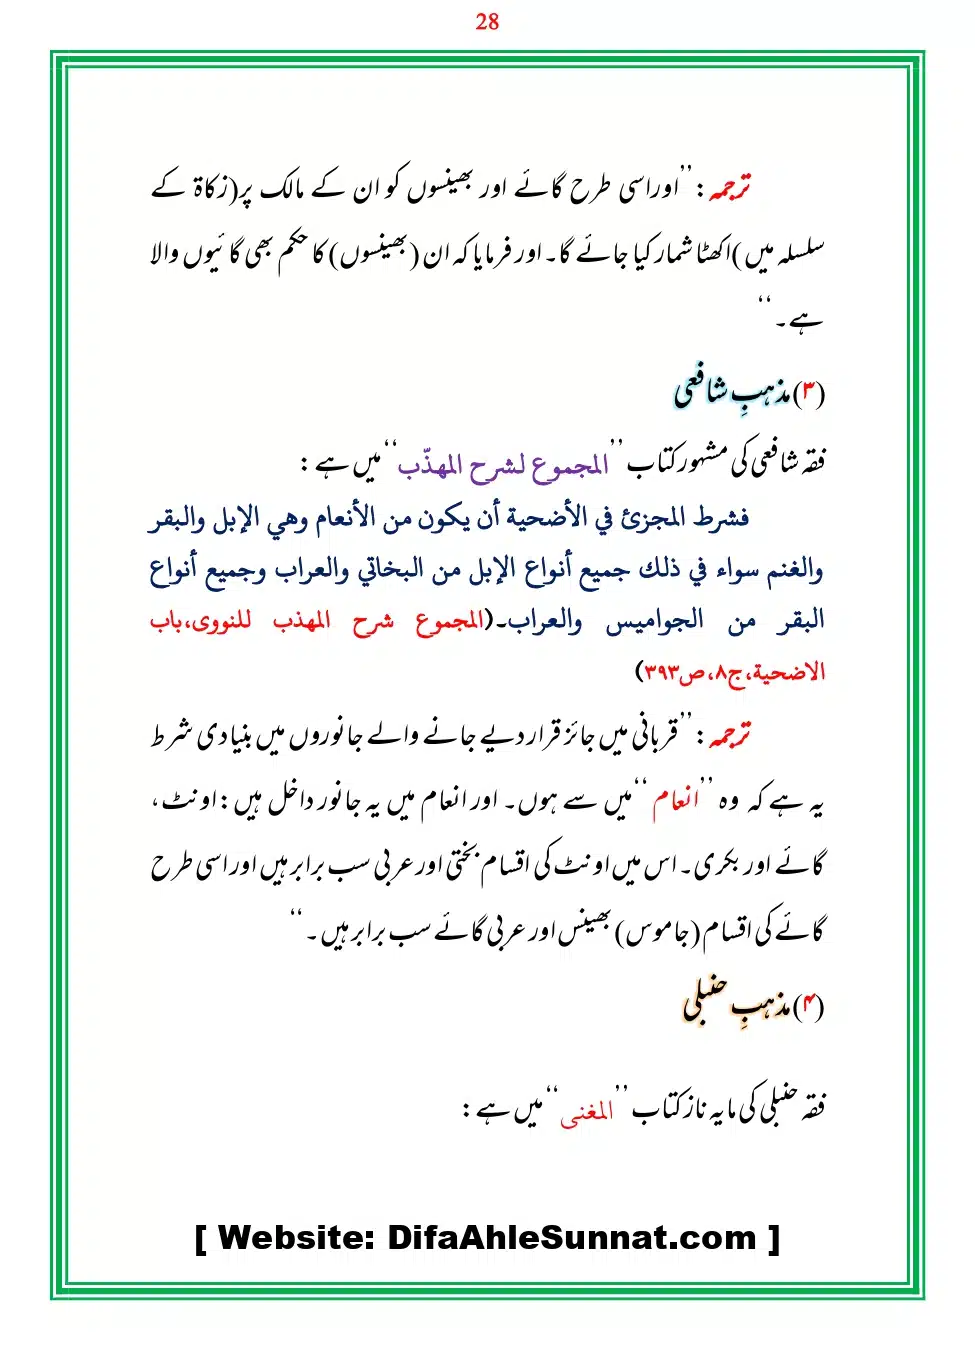 28
ترجمہ: ’’اوراسی طرح گائے اور بھینسوں کو ان کے مالک پر(زکاۃ کے
سلسلہ میں)اکھٹا شمار کیا جائے گا۔ اور فرمایا کہ ان (بھینسوں) کا حکم بھی گائیوں والا
ہے۔‘‘
(۳) مذہبِ شافعی
فقہ شافعی کی مشہور کتاب ’’المجموع لشرح المهذّب‘‘ میں ہے:
فشرط المجزئ في الأضحية أن يكون من الأنعام وهي الإبل والبقر
والغنم سواء في ذلك جميع أنواع الإبل من البخاتي والعراب وجميع أنواع
البقر من الجواميس والعراب۔(المجموع شرح المهذب للنووی،باب
الاضحية،ج۸،ص۳۹۳)
ترجمہ: ’’قربانی میں جائز قرار دیے جانے والے جانوروں میں بنیادی شرط
یہ ہے کہ وہ ’’انعام‘‘ میں سے ہوں۔ اور انعام میں یہ جانور داخل ہیں: اونٹ،
گائے اور بکری۔ اس میں اونٹ کی اقسام بختی اور عربی سب برابر ہیں اور اسی طرح
گائے کی اقسام (جاموس) بھینس اور عربی گائے سب برابر ہیں۔‘‘
(۴) مذہبِ حنبلی
فقہ حنبلی کی مایہ ناز کتاب ’’المغنی‘‘ میں ہے:
[ Website: DifaAhleSunnat.com ]